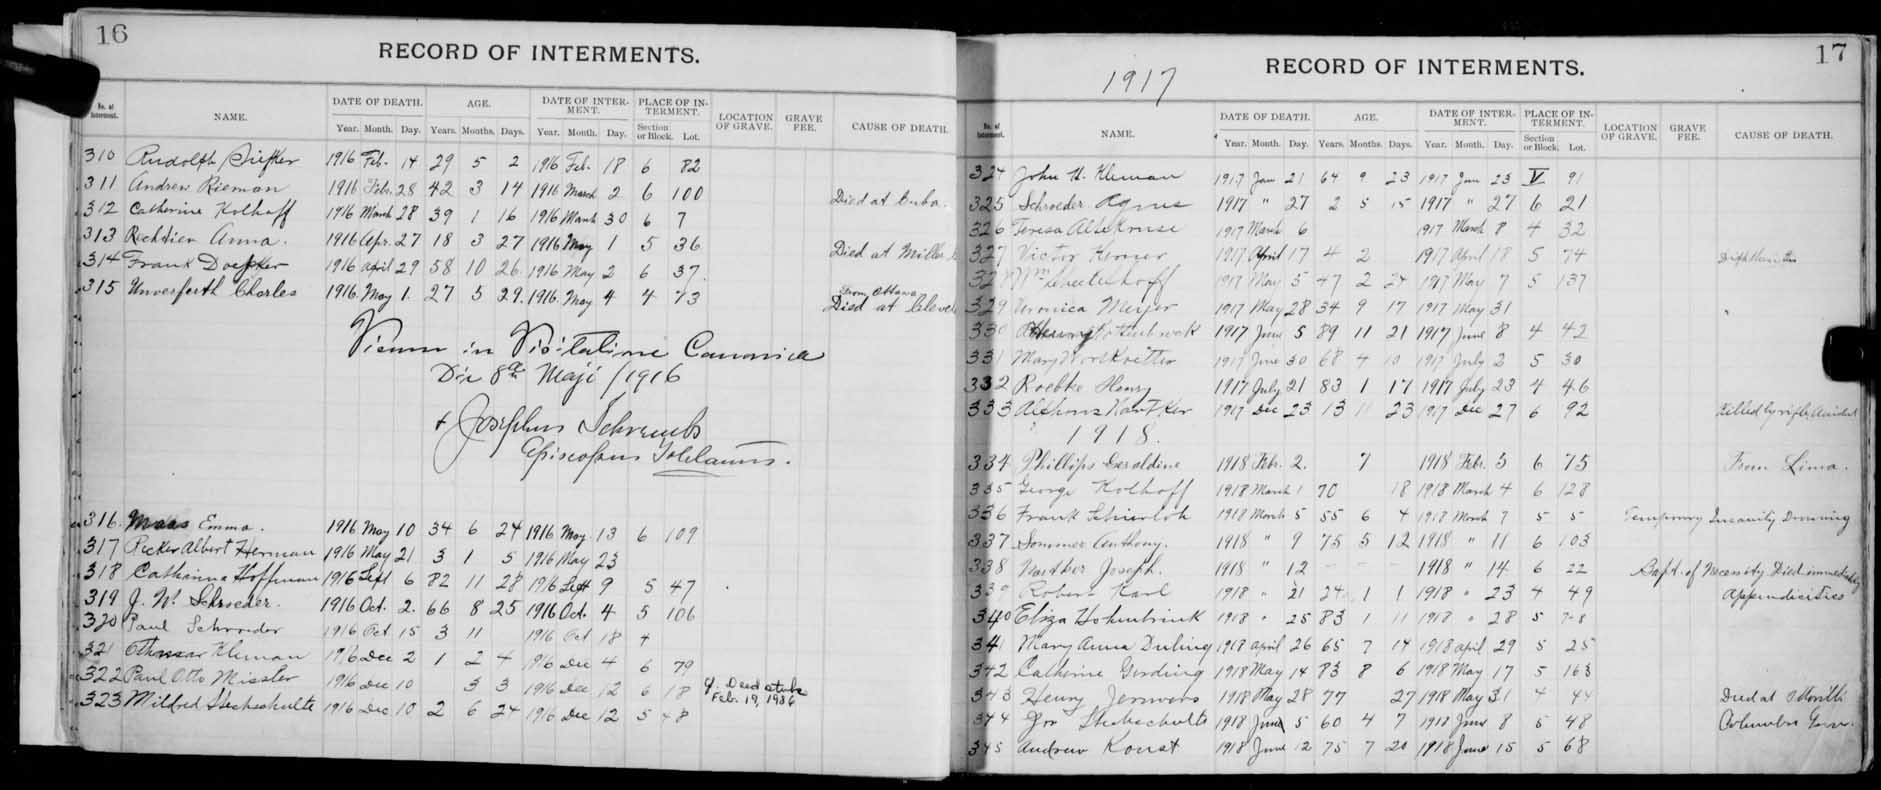 16
RECORD OF INTERMENTS.
No. of Interment. NAME. DATE OF DEATH. AGE. DATE OF INTERMENT. PLACE OF INTERMENT. LOCATION OF GRAVE. GRAVE FEE. CAUSE OF DEATH.
Year. Month. Day. Years. Months. Days. Year. Month. Day. Section or Block. Lot.
310 Rudolph 1916 Feb. 14 29 5 2 1916 Feb. 18 6 82
311 Andrew Rieman 1916 Febr. 28 42 3 14 1916 March 2 6 100 Died at Cuba.
312 Catherine Kolhoff 1916 March 28 39 1 16 1916 March 30 6 7
313 Anna. 1916 Apr. 27 18 3 27 1916 May 1 5 36 Died at Miller
314 Frank Doepker 1916 April 29 58 10 26. 1916 May 2 6 37.
315 Unverferth Charles 1916. May 1. 27 5 29. 1916. May 4 4 73 From Ottawa Died at
in Visitatione Canonica
Die 8a Maji 1916
+ Josephus Schrembs
Episcopus
316. Maas Emma. 1916 May 10 34 6 24 1916 May 13 6 109
317 Recker Albert Herman 1916 May 21 3 1 5 1916 May 23
318 Catharina Hoffman 1916 Sept 6 82 11 28 1916 Sept 9 5 47
319 J. W. Schroeder. 1916 Oct. 2. 66 8 25 1916 Oct. 4 5 106
320 Paul Schroeder 1916 Oct. 15 3 11 1916 Oct 18 4
321 Kleman 1916 Dec 2 1 2 4 1916 Dec 4 6 79
322 Paul Otto Missler 1916 Dec 10 3 3 1916 Dec. 12 6 18
Feb. 19, 1936
323 Mildred Stechschulte 1916 Dec. 10 2 6 24 1916 Dec 12 5 48
17
1917
RECORD OF INTERMENTS.
No. of Interment. NAME. DATE OF DEATH. AGE. DATE OF INTERMENT. PLACE OF INTERMENT. LOCATION OF GRAVE. GRAVE FEE. CAUSE OF DEATH.
Year. Month. Day. Years. Months. Days. Year. Month. Day. Section or Block. Lot.
324 John H. Kleman 1917 Jan 21 64 9 23 1917 Jan 23 V 91
325 Schroeder Agnes 1917 " 27 2 5 15 1917 " 27 6 21
326 Teresa Altekruse 1917 March 6 1917 March 8 4 32
327 Victor 1917 April 17 4 2 1917 April 18 5 74
328 Wm 1917 May 5 47 2 24 1917 May 7 5 137
329 Veronica Meyer 1917 May 28 34 9 17 1917 May 31
330 Henry 1917 June 5 89 11 21 1917 June 8 4 42
331 Mary 1917 June 30 68 4 10 1917 July 2 5 30
332 Roebke Henry 1917 July 21 83 1 17 1917 July 23 4 46
333 1917 Dec 23 13 11 23 1917 Dec 27 6 92 Killed by rifle Accident
1918.
334 Phillips Geraldine 1918 Febr. 2. 7 1918 Febr. 5 6 75 From Lima.
335 George Kolhoff 1918 March 1 70 18 1918 March 4 6 128
336 Frank 1918 March 5 55 6 4 1918 March 7 5 5 Temporary Insanity Drowning
337 Sommer Anthony. 1918 " 9 75 5 12 1918 " 11 6 103
338 Joseph. 1918 " 12 - - - 1918 " 14 6 22 Bapt. of Necessity Died immediately
339 Karl 1918 " 21 24 1 1 1918 " 23 4 49 Appendicities
340 Eliza Hohenbrink 1918 " 25 83 1 11 1918 " 28 5
341 Mary Anna Duling 1918 April 26 65 7 14 1918 April 29 5 25
342 Catherine Gerding 1918 May 14 83 8 6 1918 May 17 5 163
343 Henry 1918 May 28 77 27 1918 May 31 4 44 Died at
344 Stechschulte 1918 June 5 60 4 7 1918 June 8 5 48 Columbus
345 Andrew Konst 1918 June 12 75 7 20 1918 June 15 5 68